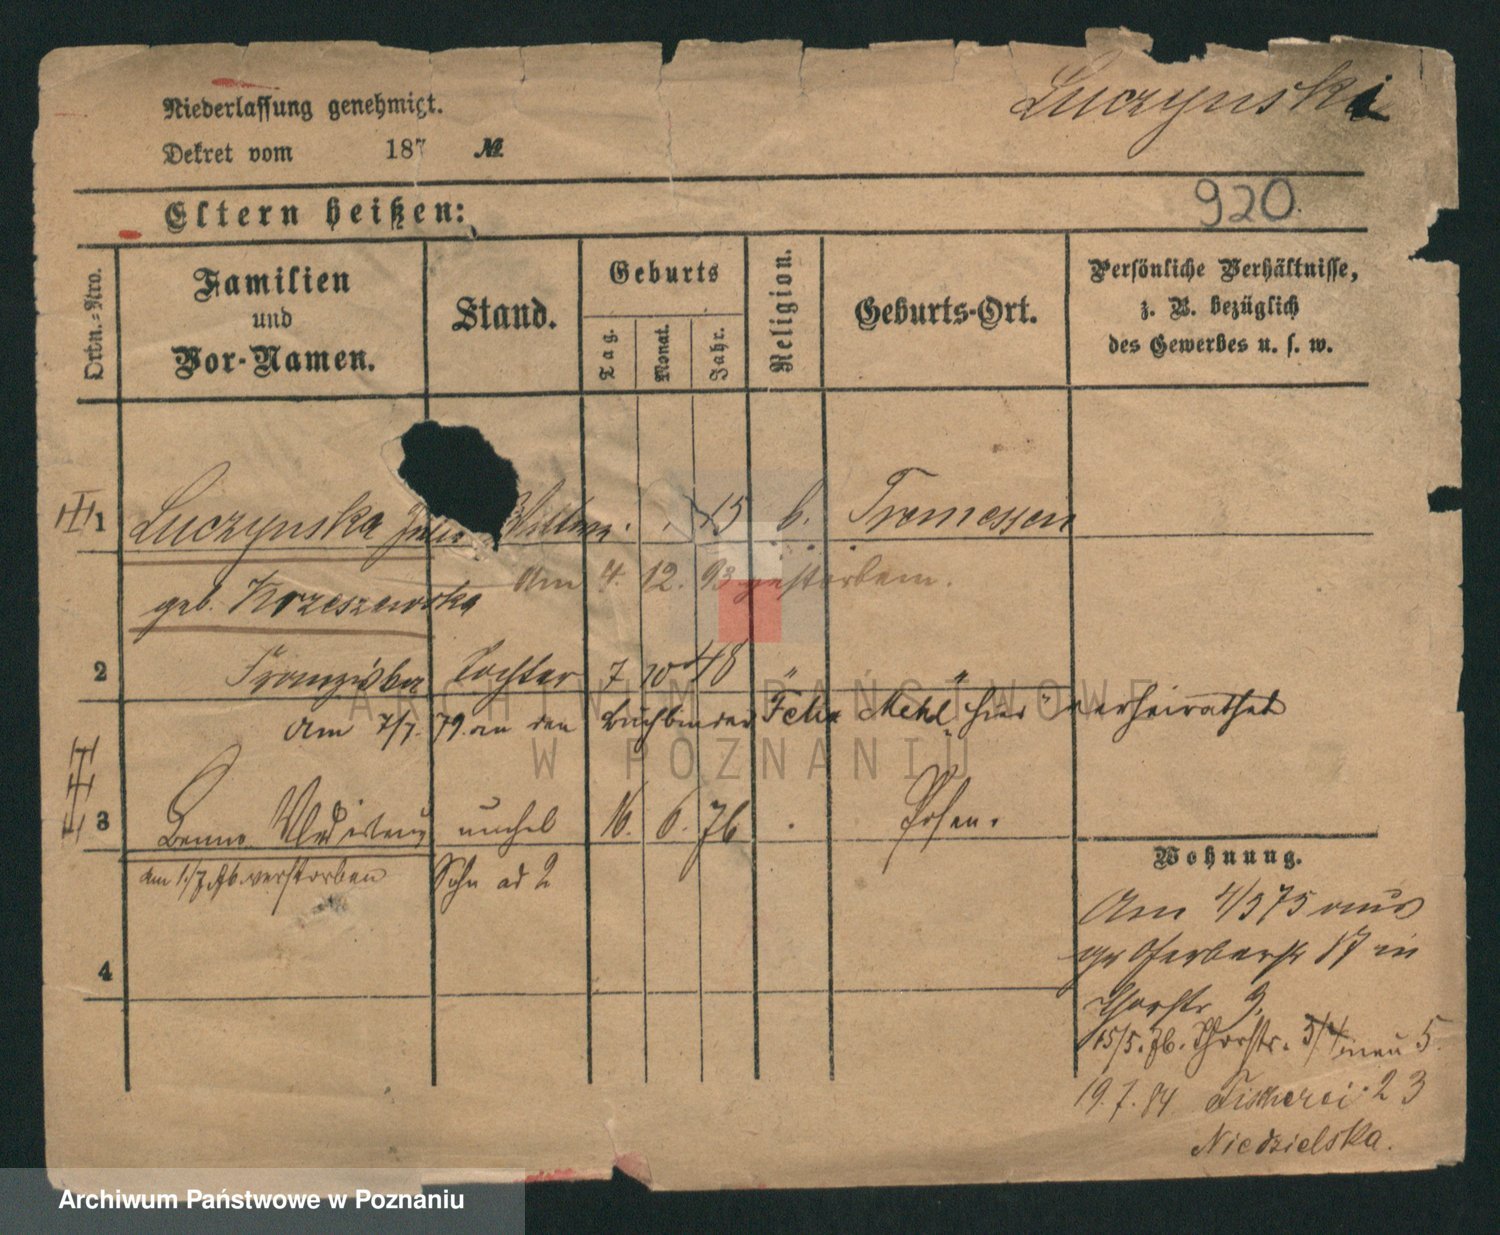 Luczynski
Niederlassung genehmigt.
Dekret vom 187 №
920.
Eltern heißen:
Ordn.-Nro.
Familien
und
Vor-Namen.
Stand.
Geburts
Tag.
Monat.
Jahr.
Religion.
Geburts-Ort.
Persönliche Verhältnisse,
z. B. bezüglich
des Gewerbes u. s. w.
1 Luczynska 15 Tremessen
geb. Krzeszewska Am 4. 12. 93 gestorben.
2 Franziska Tochter 7 10 48 " "
Am 7/7. 79. an den Buchbinder Felix Mehl hier verheirathet
3 Benno Wladislaus unehel 16. 6. 76 Posen.
am 1./7. 76. verstorben Sohn ad 2
4
Wohnung.
Am 4/5 75 aus
gr Gerberstr 17 in
Thorstr 9.
15/5. 76. Thorstr. 3/4 neu 5.
19. 7. 84 Fischerei 23
Niedzielska.
ARCHIWUM PAŃSTWOWE
W POZNANIU
Archiwum Państwowe w Poznaniu